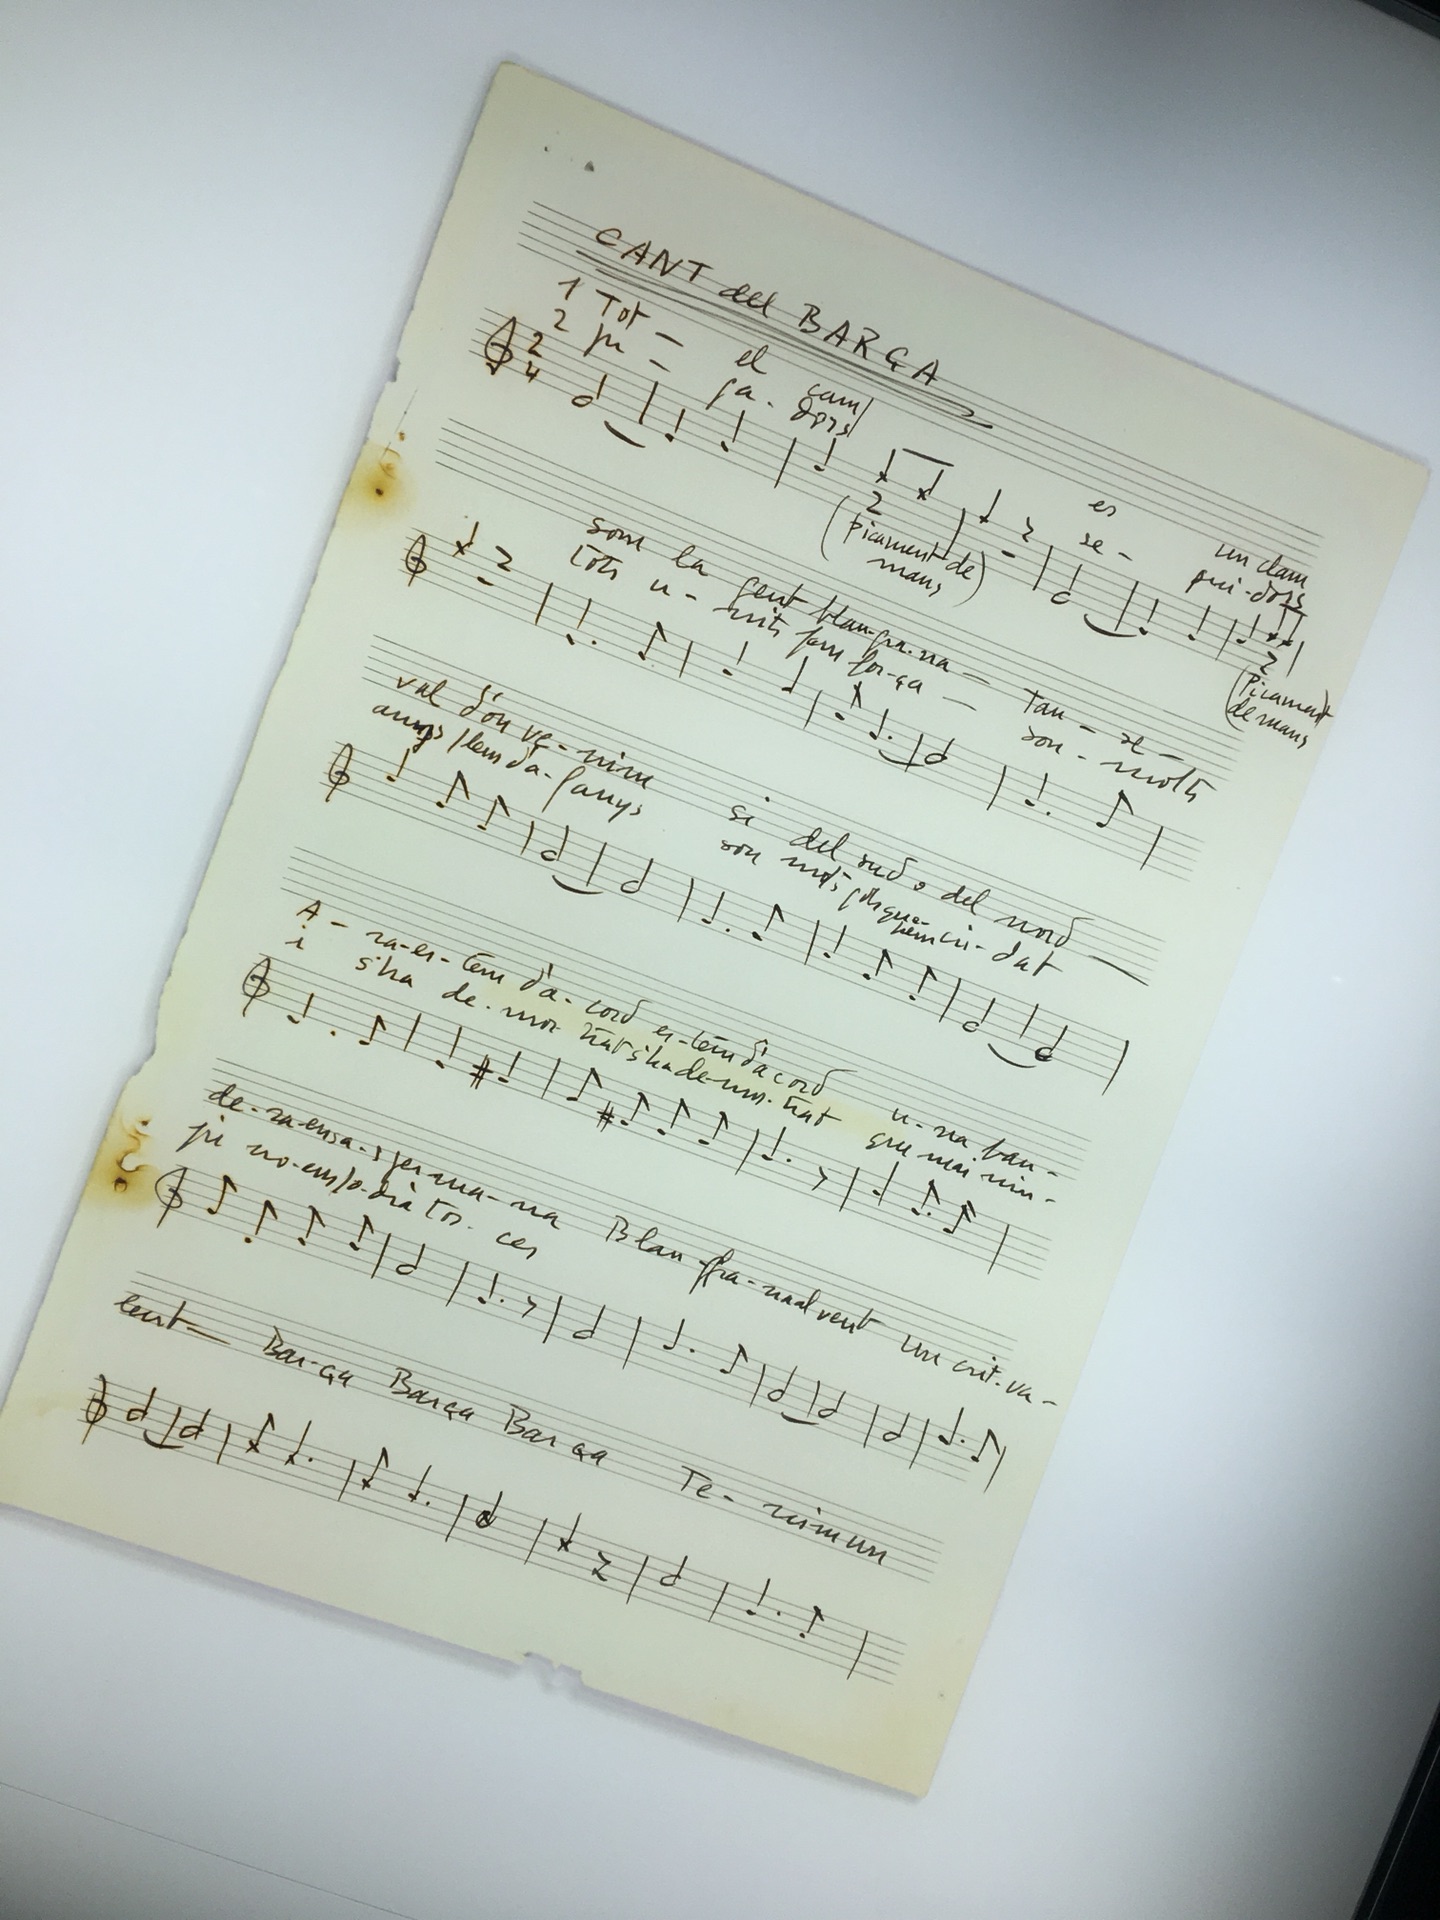 CANT del BARÇA
1 Tot - el camp es un clam
2 Ju - ga - dors se - gui-dors
2 4
2 (Picament de mans)
2 (Picament de mans)
som la gent blau-gra-na - Tan - se -
Tots u - nits fem for-ça - son - molts
val d'on ve-nim si del sud o del nord
anys plens d'a-fanys son molts gols que hem cri-dat
A - ra-es-tem d'a-cord es-tem d'acord u-na ban-
i s'ha de-mos trat s'ha de-mos-trat que mai nin-
de-ra-ens a-germa-na Blau-gra-naal vent un crit-va-
gú no-ens po-drà tor-cer
lent Bar-ça Barça Barça Te-nim un